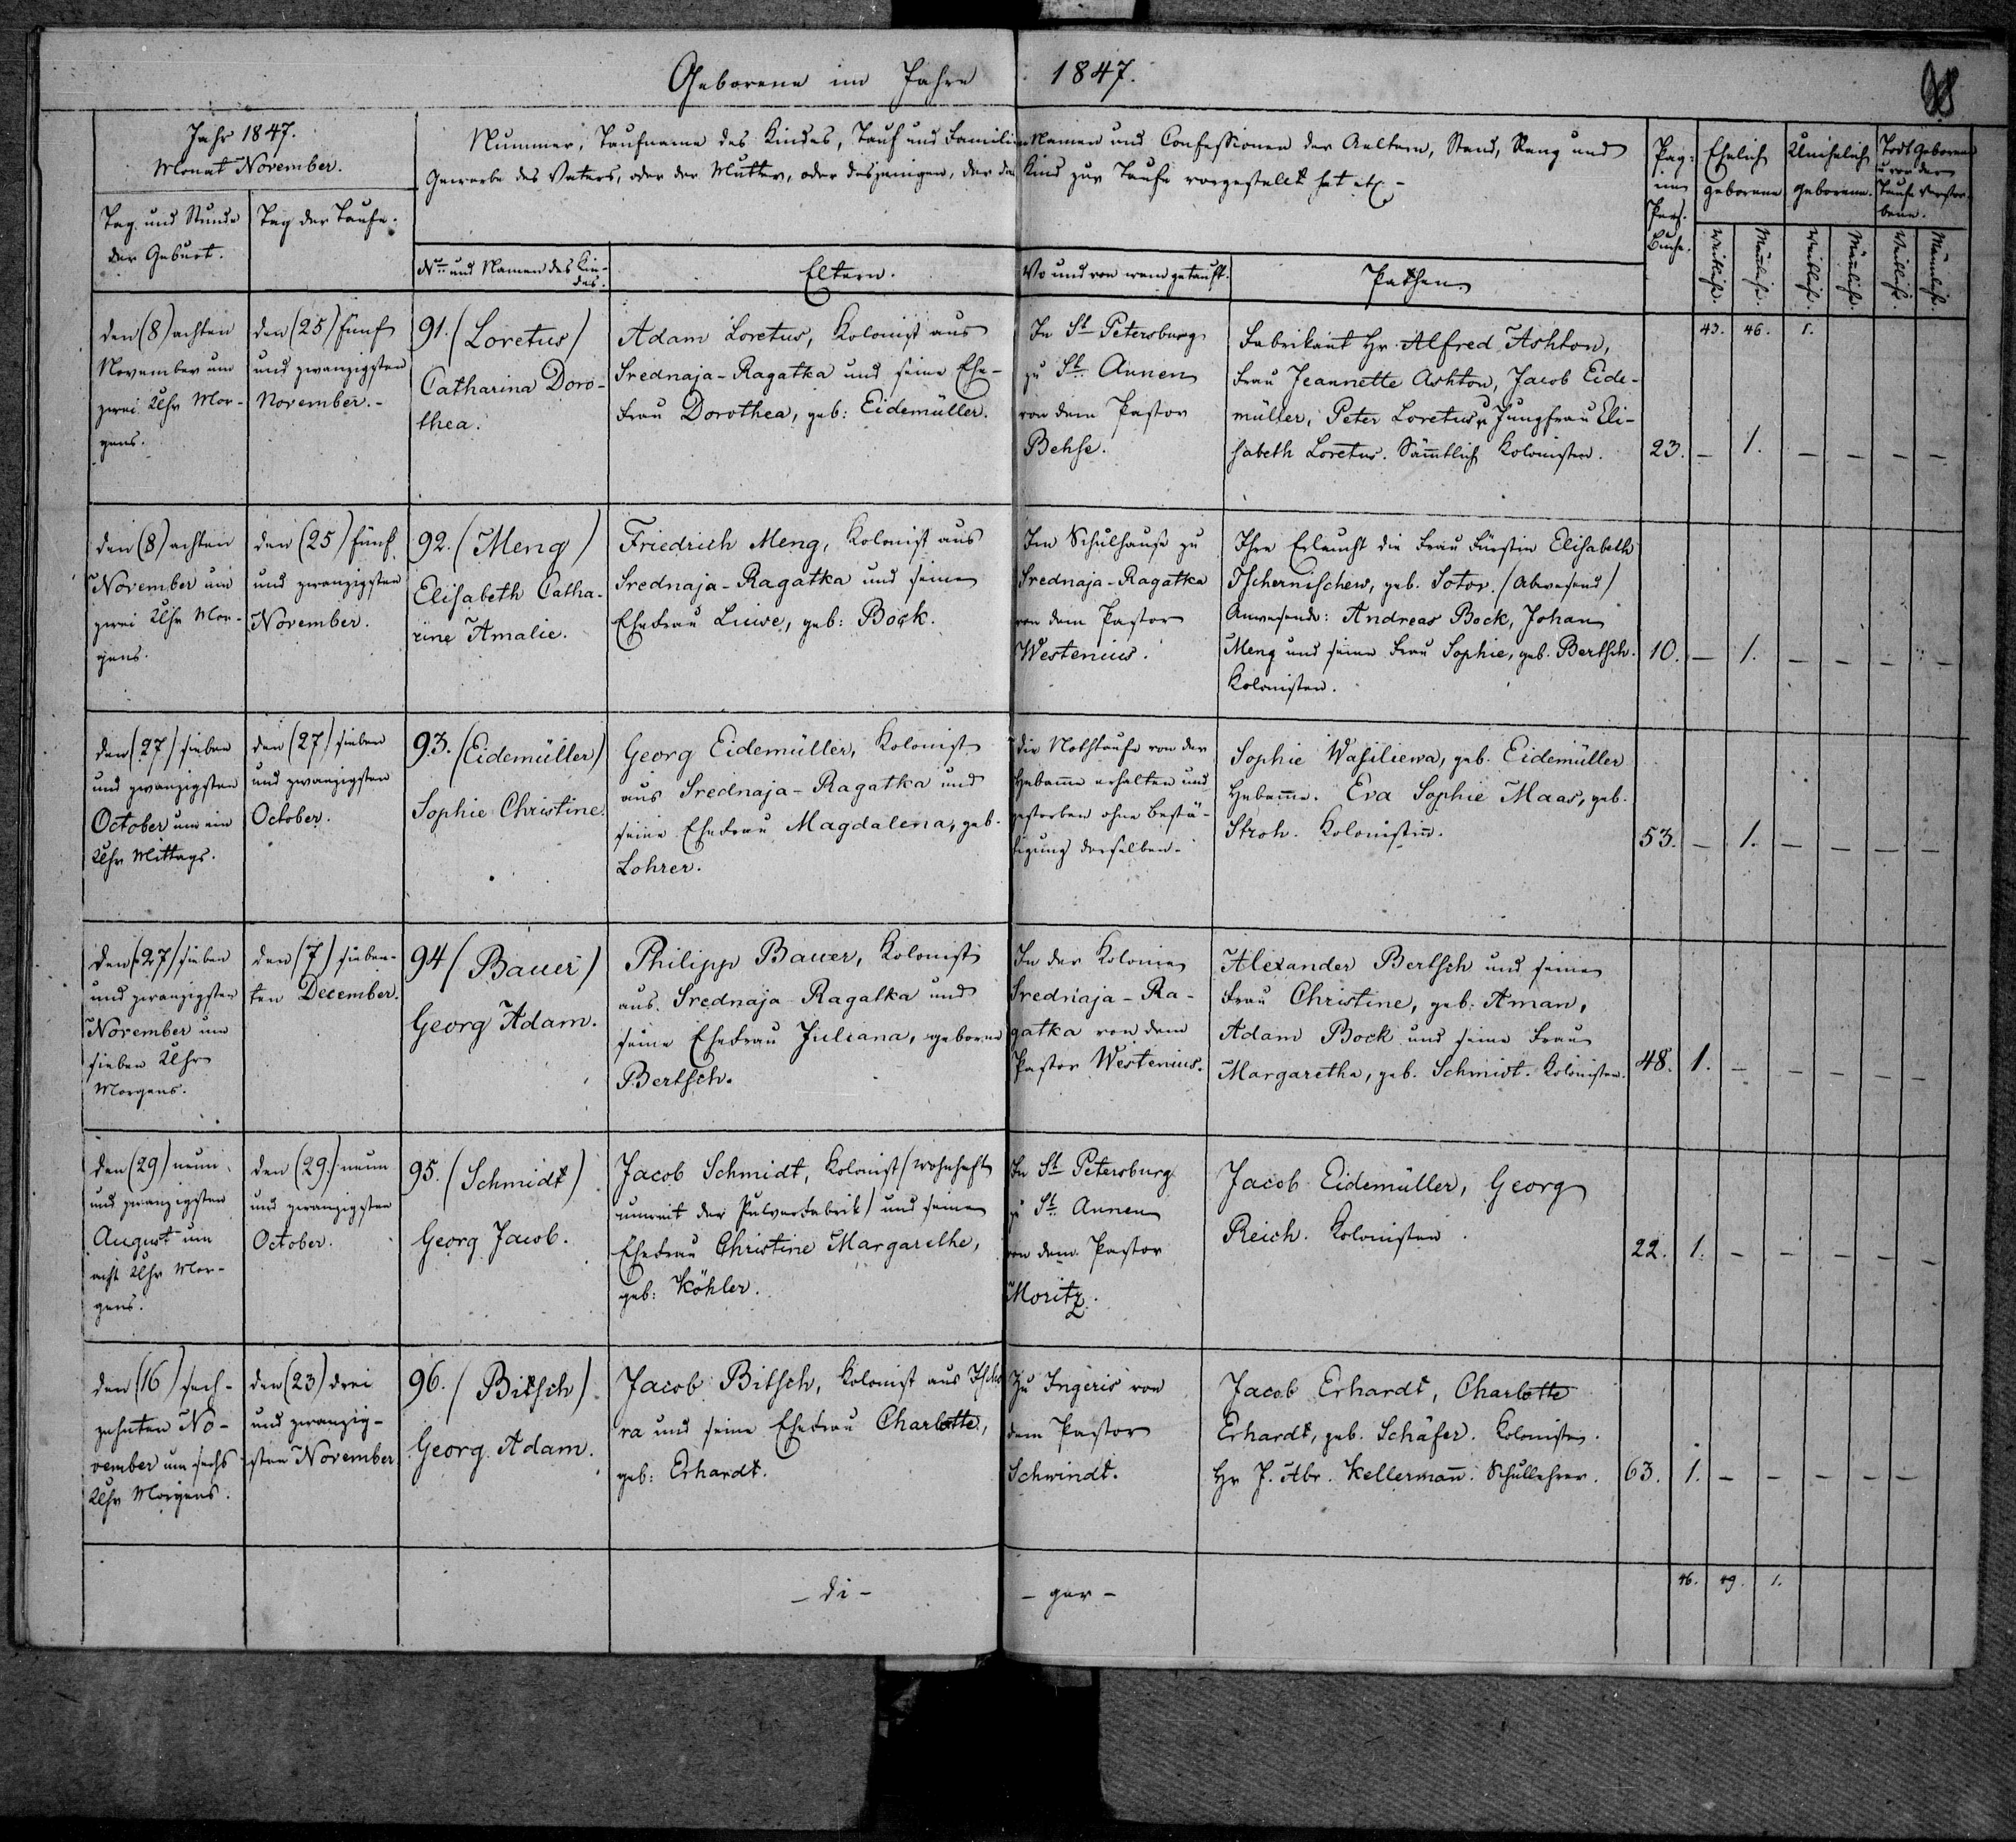 Geborene im Jahre 1847.
98
Jahr 1847.
Monat November.
Nummer, Taufname des Kindes, Tauf und Familien Namen und Confessionen der Aeltern, Stand, Rang und
Gewerbe des Vaters, oder der Mutter, oder desjenigen, der das Kind zur Taufe vorgestellt hat etc. -
Pag:
im
Pers.
Buche.
Ehelich
geborene
Unehelich
geborene.
Todt Geborene
u vor der
Taufe Verstor-
bene.
Tag und Stunde
der Geburt.
Tag der Taufe.
No und Namen des Kin-
des.
Eltern.
Wo und von wem getauft.
Pathen.
Weibliche.
Männliche.
Weibliche.
Männliche.
Weibliche.
Männliche.
43. 46. 1.
den (8) achten
November um
zwei Uhr Mor-
gens.
den (25) fünf
und zwanzigsten
November. -
91. (Loretus)
Catharina Doro-
thea.
Adam Loretus, Kolonist aus
Srednaja-Ragatka und seine Ehe-
frau Dorothea, geb: Eidemüller.
In St Petersburg
zu St. Annen
von dem Pastor
Behse.
Fabrikant Hr. Alfred Ashton,
Frau Jeannette Ashton, Jacob Eide-
müller, Peter Loretus u Jungfrau Eli-
sabeth Loretus. Sämtlich Kolonisten.
23. - 1. - - - -
den (8) achten
November um
zwei Uhr Mor-
gens.
den (25) fünf
und zwanzigsten
November.
92. (Meng)
Elisabeth Catha-
rine Amalie.
Friedrich Meng, Kolonist aus
Srednaja-Ragatka und seine
Ehefrau Luise, geb: Bock.
Im Schulhause zu
Srednaja-Ragatka
von dem Pastor
Westenius.
Ihre Erlaucht die Frau Fürstin Elisabeth
Tschernischew, geb. Sotov. (Abwesend)
Anwesende: Andreas Bock, Johan
Meng und seine Frau Sophie, geb. Bertsch.
Kolonisten.
10. - 1. - - - -
den (27) sieben
und zwanzigsten
October um ein
Uhr Mittags.
den (27) sieben
und zwanzigsten
October.
93. (Eidemüller)
Sophie Christine.
Georg Eidemüller, Kolonist
aus Srednaja-Ragatka und
seine Ehefrau Magdalena, geb.
Lohrer.
die Nothtaufe von der
Hebame erhalten und
gestorben ohne Bestä-
tigung derselben.
Sophie Wasiliewa, geb. Eidemüller
Hebame. Eva Sophie Maas, geb.
Stroh. Kolonistin.
53. - 1. - - - -
den (27) sieben
und zwanzigsten
November um
sieben Uhr
Morgens.
den (7) sieben-
ten December.
94 (Bauer)
Georg Adam.
Philipp Bauer, Kolonist
aus Srednaja-Ragatka und
seine Ehefrau Juliana, geborne
Bertsch.
In der Kolonie
Srednaja-Ra-
gatka von dem
Pastor Westenius.
Alexander Bertsch und seine
Frau Christine, geb. Aman,
Adam Bock und seine Frau
Margaretha, geb. Schmidt. Kolonisten.
48. 1. - - - - -
den (29) neun
und zwanzigsten
August um
acht Uhr Mor-
gens.
den (29) neun
und zwanzigsten
October.
95. (Schmidt)
Georg Jacob.
Jacob Schmidt, Kolonist (wohnhaft
unweit der Pulverfabrik) und seine
Ehefrau Christine Margarethe,
geb: Köhler.
In St Petersburg
zu St. Annen
von dem Pastor
Moritz.
Jacob Eidemüller, Georg
Reich. Kolonisten.
22. 1. - - - - -
den (16) sech-
zehnten No-
vember um sechs
Uhr Morgens.
den (23) drei
und zwanzig-
sten November
96. (Bitsch)
Georg Adam.
Jacob Bitsch, Kolonist aus
ra und seine Ehefrau Charlotte,
geb: Erhardt.
Zu Ingeris von
dem Pastor
Schwindt.
Jacob Erhardt, Charlotte
Erhardt, geb. Schäfer. Kolonisten.
Hr J. Abr. Kellermann. Schullehrer.
63. 1. - - - - -
- di - - ger -
46. 49. 1.